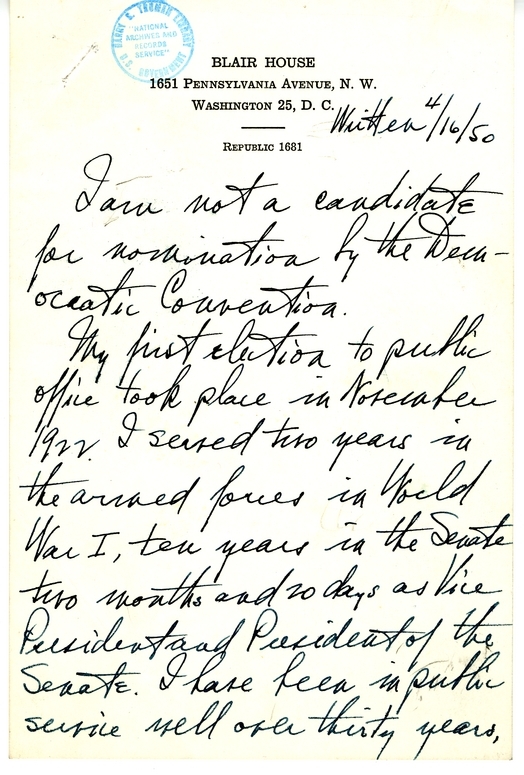 HARRY S. TRUMAN LIBRARY
"NATIONAL
ARCHIVES AND
RECORDS
SERVICE"
U.S. GOVERNMENT
BLAIR HOUSE
1651 PENNSYLVANIA AVENUE, N. W.
WASHINGTON 25, D. C.
Written 4/16/50
REPUBLIC 1681
I am not a candidate
for nomination by the Dem-
ocratic Convention.
My first election to public
office took place in November
1922. I served two years in
the armed forces in World
War I, ten years in the Senate
two months and 20 days as Vice
President and President of the
Senate. I have been in public
service well over thirty years,